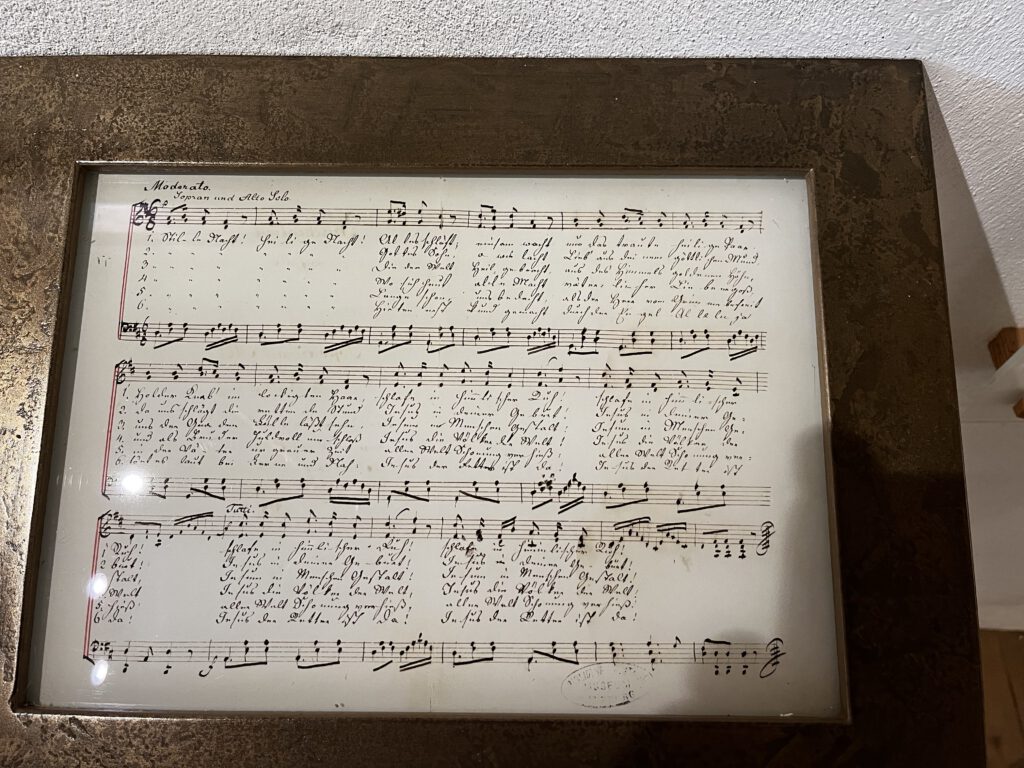 Moderato.
Sopran und Alto Solo
1. Stil le Nacht! Hei li ge Nacht! Al les schläft; einsam wacht nur das traute heili ge Paar.
2. " " " " " " " Gottes Sohn; o wie lacht Lieb aus dei nem göttlichen Mund,
3. " " " " " " " Die der Welt Heil gebracht, aus des Himmels goldenen Höhn,
4. " " " " " " " Wo sich heut alle Macht väter licher Liebe ergoß,
5. " " " " " " " Lange schon uns bedacht, als der Herr vom Grimme befreit
6. " " " " " " " Hirten erst kund gemacht durch der En gel Al le lu ja
1. Holder Knab' im lockigten Haar; schlafe in himmlischer Ruh! schlafe in himmlischer
2. da uns schlägt die rettende Stund Jesus in deiner Geburt! Jesus in deiner Ge-
3. uns der Gnaden Fülle läßt sehn, Jesum in Menschen Gestalt! Jesum in Menschen Ge-
4. und als Bruder Huldvoll umschloß Jesus die Völker der Welt! Jesus die Völker der
5. in der Väter urgrauer Zeit aller Welt Schonung verhieß! aller Welt Schonung ver-
6. tönt es laut bei Ferne und Nah: Jesus der Retter ist da! Jesus der Retter ist
Tutti.
1 Ruh! schlafe in himmlischer Ruh! schlafe in himmlischer Ruh!
2 burt! Jesus in deiner Ge-burt! Jesus in deiner Ge burt!
3 stalt! Jesum in Menschen Gestalt! Jesum in Menschen Gestalt!
4 Welt Jesus die Völker der Welt, Jesus die Völker der Welt!
5. hieß! aller Welt Schonung verhieß, aller Welt Schonung verhieß!
6 da! Jesus der Retter ist da! Jesus der Retter ist da!